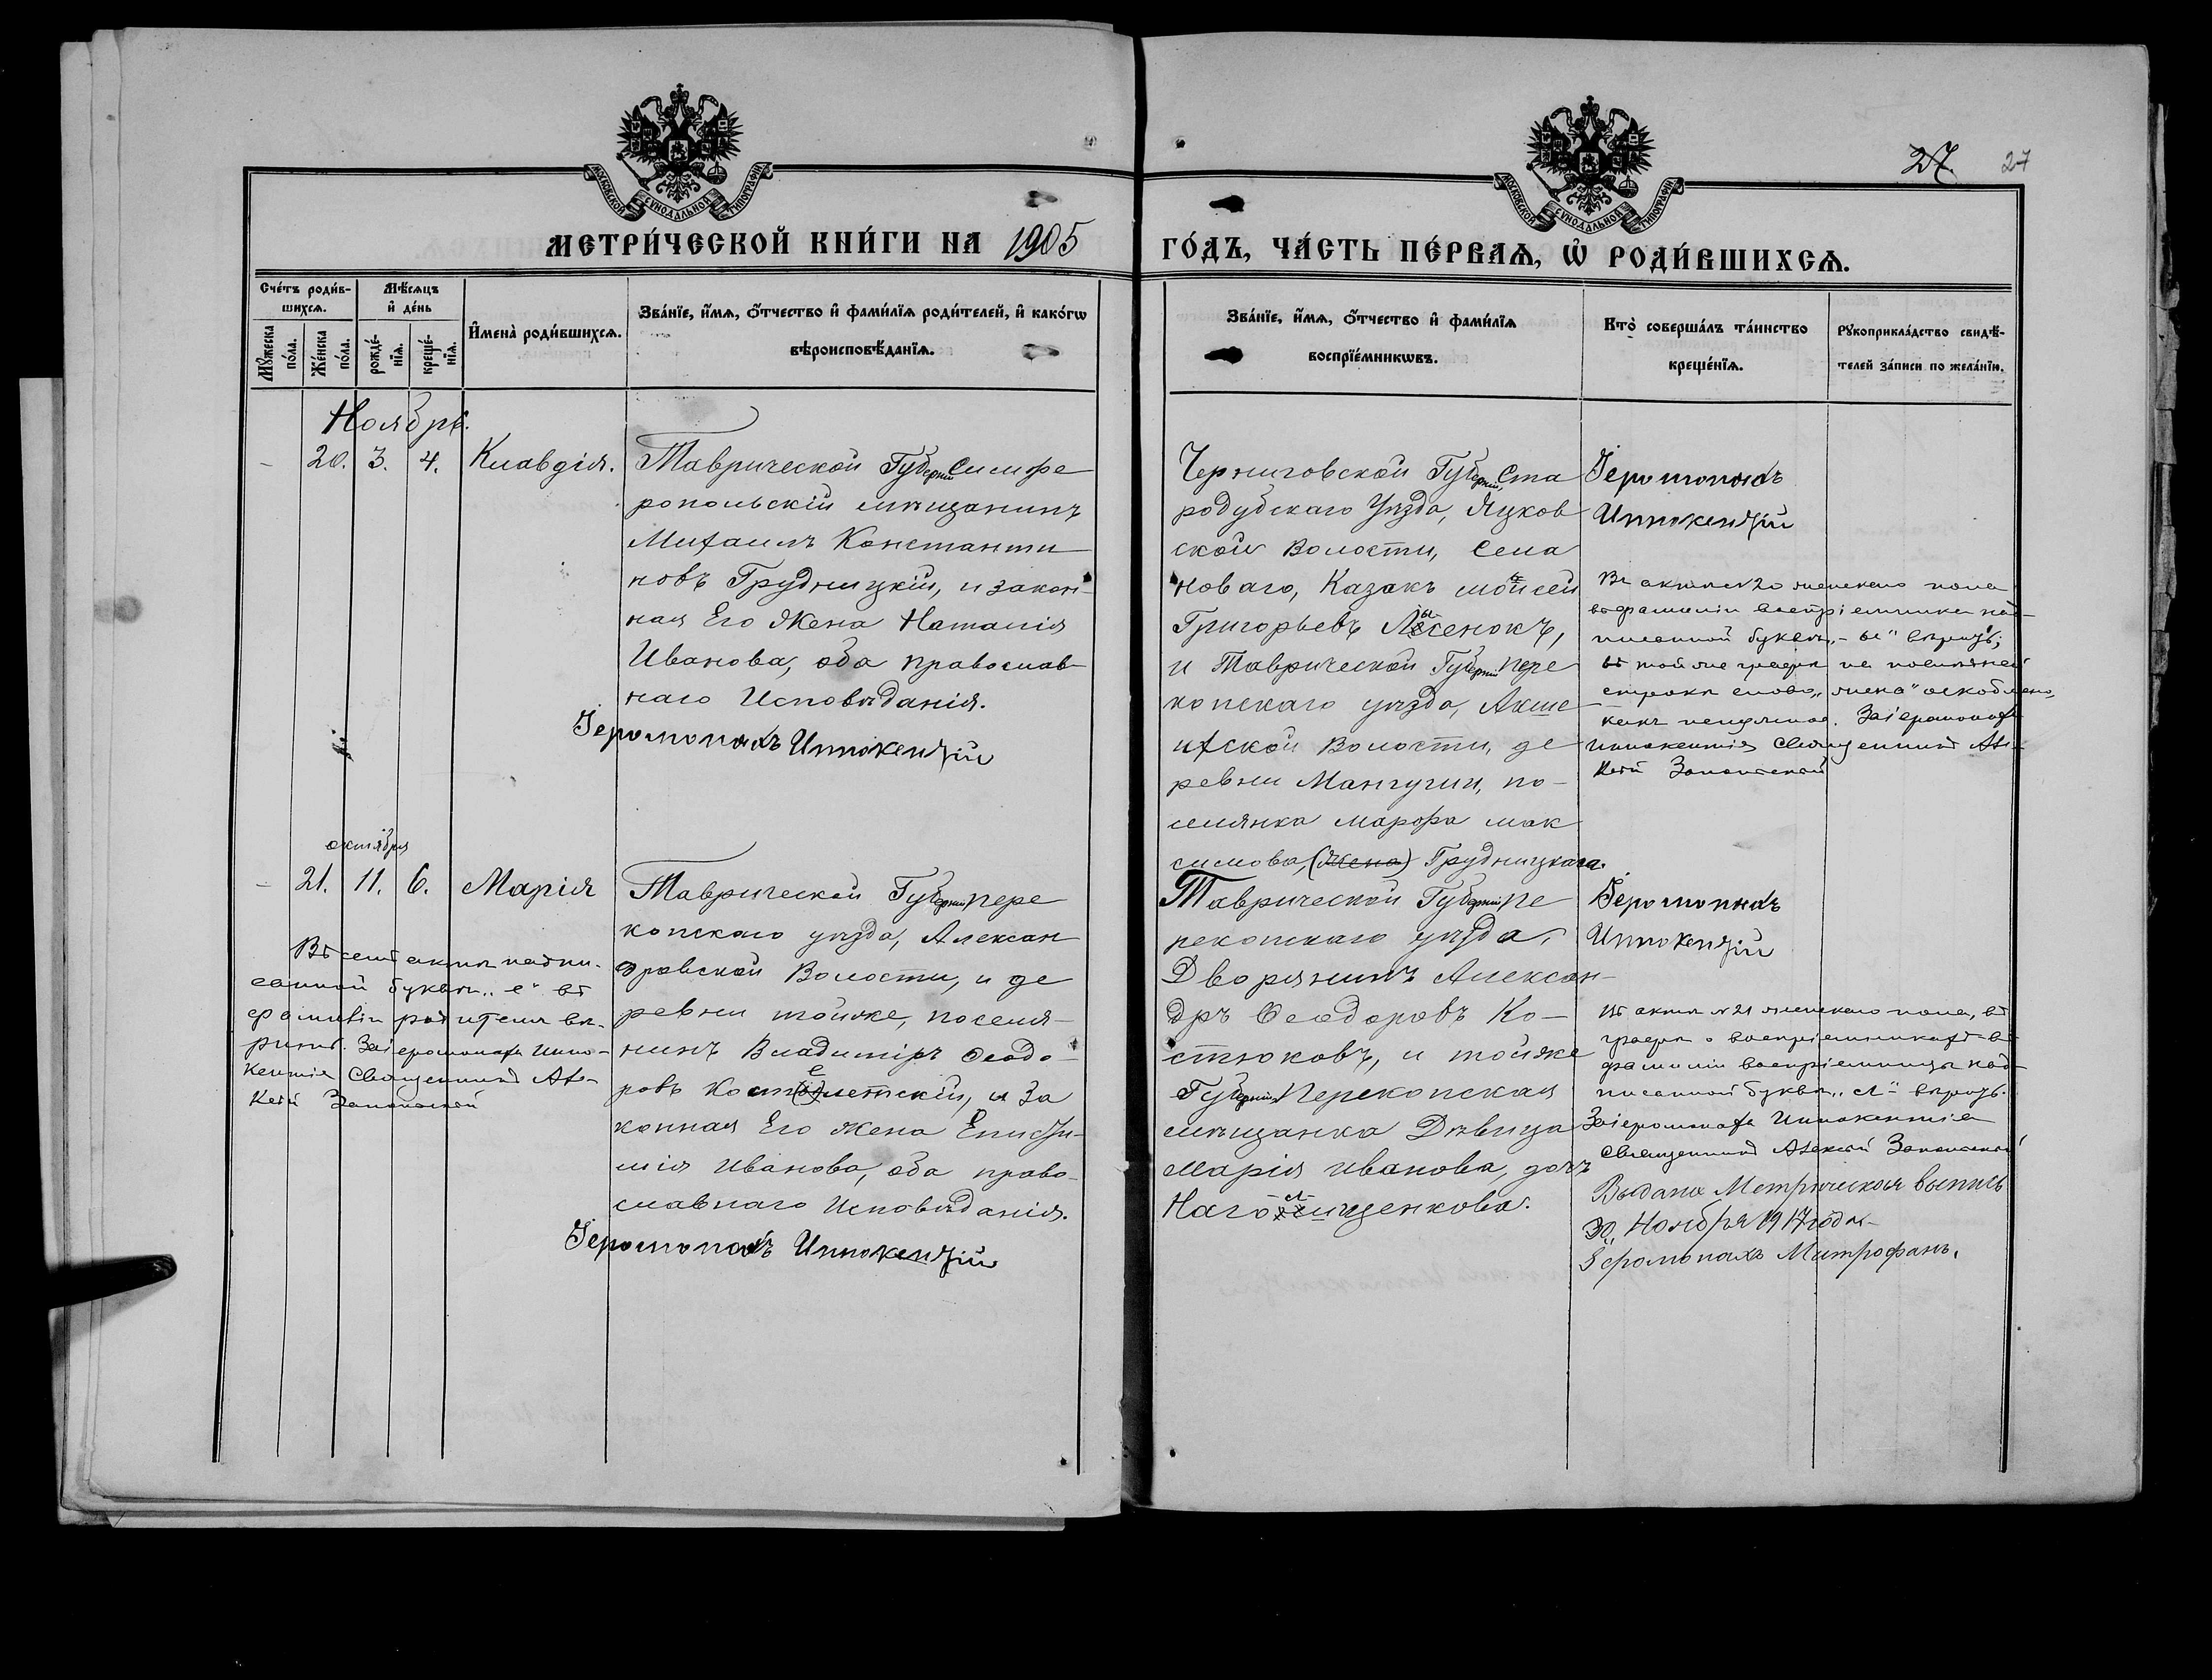 27. 27
МОСКОВСКОЙ СѴНОДАЛЬНОЙ ТИПОГРАФІИ
МОСКОВСКОЙ СѴНОДАЛЬНОЙ ТИПОГРАФІИ
МЕТРИ́ЧЕСКОЙ КНИ́ГИ НА 1905
ГО́ДЪ, ЧА́СТЬ ПЕ́РВАѦ, Ѡ҆ РОДИ́ВШИХСѦ.
Сче́тъ роди́в-
шихсѧ.
Мꙋ́жеска по́ла.
Же́нска по́ла.
Мѣ́сѧцъ
и҆ де́нь
рожде́-нїѧ.
креще́-нїѧ.
И҆мена̀ роди́вшихсѧ.
Зва́нїе, и҆́мѧ, ѻ҆́тчество и҆ фами́лїѧ роди́телей, и҆ како́гѡ
вѣроисповѣ́данїѧ.
Зва́нїе, и҆́мѧ, ѻ҆́тчество и҆ фами́лїѧ
воспрїе́мникѡвъ.
Кто̀ соверша́лъ та́инство
креще́нїѧ.
Рꙋкоприкла́дство свидѣ́-
телей за́писи по жела́нїю.
Ноябрь.
- 20. 3. 4. Клавдія.
Таврической Губерніи Симфе
ропольскій мѣщанинъ
Михаилъ Константи
новъ Грудницкій, и закон-
ная Его Жена Наталія
Иванова, оба православ-
наго Исповѣданія.
Іеромонахъ Иннокентій
Черниговской Губерніи, Ста
родубскаго Уѣзда, Яцков
ской Волости, Села
Новаго, Казакъ Моисей
Григорьевъ Лысенокъ,
и Таврической Губерніи Пере
копскаго уѣзда, Акше
ихской Волости, де
ревни Мангучи, по-
селянка Марфа Мак
симова, (Жена) Грудницкаго.
Іеромонахъ
Иннокентій
Въ актѣ № 20 женскаго пола
въ фамиліи воспріемника над-
писанной буквѣ „ы" вѣрить;
въ той же графѣ на послѣдней
строкѣ слово „жена" оскоблено,
какъ ненужное. За іеромонаха
Иннокентія Священникъ Але-
ксѣй
октября
- 21. 11. 6. Марія
Въ семъ актѣ надпи-
санной буквѣ „е" въ
фамиліи родителя вѣ-
рить. За іеромонаха Инно-
кентія Священникъ Але-
ксѣй
Таврической Губерніи Пере
копскаго уѣзда, Алексан
дровской Волости, и де
ревни тойже, поселя-
нинъ Владиміръ Ѳеодо-
ровъ Костелетскій, и За
конная Его Жена Епистли-
мія Иванова, оба право-
славнаго Исповѣданія.
Іеромонахъ Иннокентій
Таврической Губерніи Пе
рекопскаго уѣзда,
Дворянинъ Алексан-
дръ Ѳеодоровъ Ко-
стюковъ, и тойже
Губерніи Перекопская
мѣщанка Дѣвица
Марія Иванова, дочь
Іеромонахъ
Иннокентій
Въ актѣ № 21 женскаго пола, въ
графѣ о воспріемникахъ въ
фамиліи воспріемницы над-
писанной буквѣ „л" вѣрить.
За іеромонаха Иннокентія
Священникъ Алексѣй
Выдана Метрическая выпись
30 Ноября 1917 года
Іеромонахъ Митрофанъ.